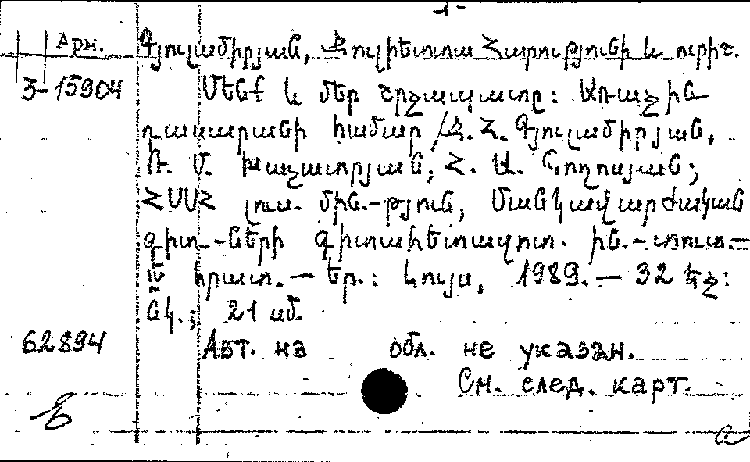 -1-
Арм. Գյուլամիրյան, Ջուլիետտա Հարությունի և ուրիշ.
3-15904 Մենք և մեր շրջապատը: Առաջին
դասարանի համար /Ջ. Հ. Գյուլամիրյան,
Ռ. Մ. Խաչատրյան, Հ. Ա. Նողոսյան;
ՀՍՍՀ լուս. մին.-թյուն, Մանկավարժական
գիտ-ների գիտահետազոտ. ին.-տուտ.-
Ե հրատ. - Եր.: Լույս, 1989. - 32 էջ:
նկ.; 21 սմ.
62894 Авт. на обл. не указан.
См. след. карт.